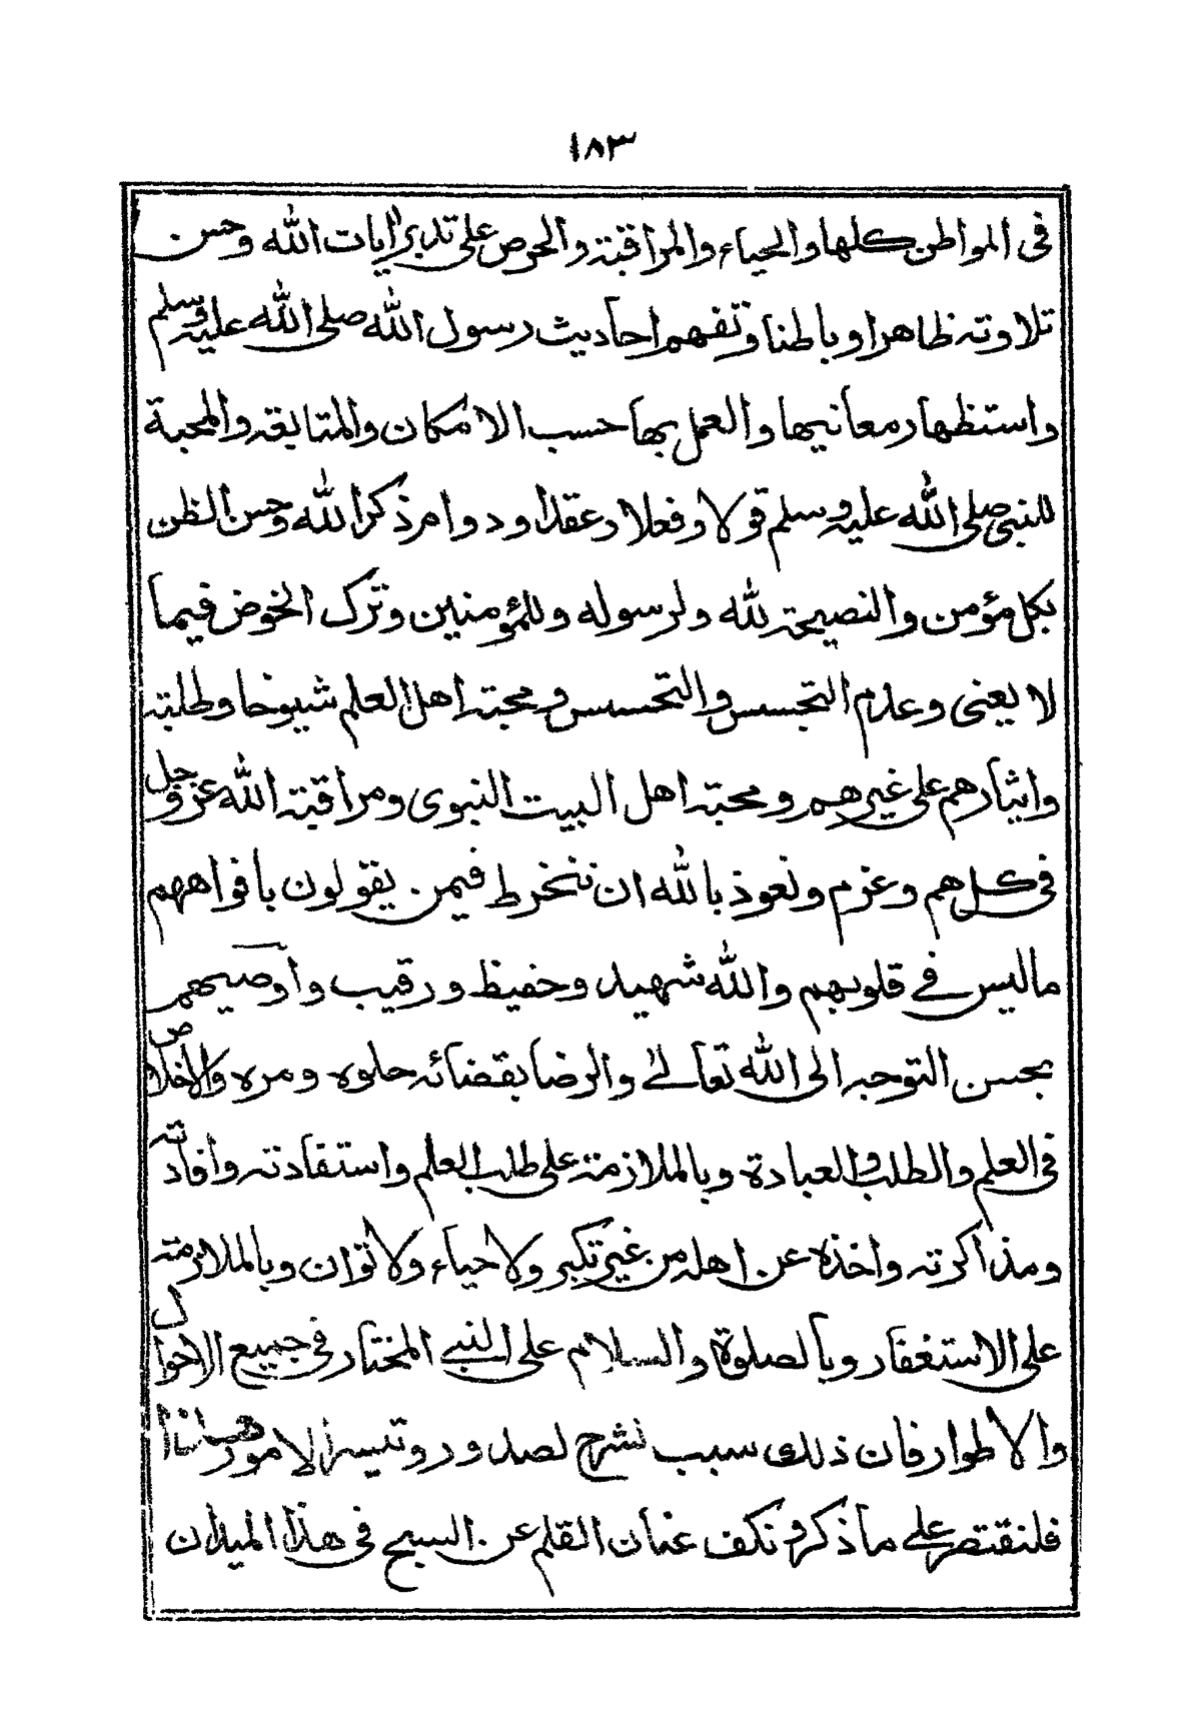 ١٨٣
فى المواطن كلها والحياء والمراقبة والحرص على تدبر ايات الله وحسن
تلاوته ظاهرا وباطنا وتفهم احاديث رسول الله صلى الله عليه وسلم
واستظهار معانيها والعمل بها حسب الامكان والمتابعة والمحبة
للنبى صلى الله عليه وسلم قولا وفعلا وعقدا ودوام ذكر الله وحسن الظن
بكل مؤمن والنصيحة لله ولرسوله وللمؤمنين وترك الخوض فيما
لا يعنى وعدم التجسس والتحسس ومحبة اهل العلم شيوخا وطلبة
وايثارهم على غيرهم ومحبة اهل البيت النبوى ومراقبة الله عز وجل
فى كل هم وعزم ونعوذ بالله ان ننخرط فيمن يقولون بافواههم
ما ليس في قلوبهم والله شهيد وحفيظ ورقيب واوصيهم
بحسن التوجه الى الله تعالى والرضا بقضائه حلوه ومره والاخلاص
فى العلم والطلب والعبادة وبالملازمة على طلب العلم واستفادته وافادته
ومذاكرته واخذه عن اهله من غير تكبر ولا حياء ولا توان وبالملازمة
على الاستغفار وبالصلوة والسلام على النبي المختار فى جميع الاحوال
والاطوار فان ذلك سبب نشرح لصدور وتيسر الامور وهـٰهنا
فلنقتصر على ما ذكر ونكف عنان القلم عن السبح فى هذا الميدان